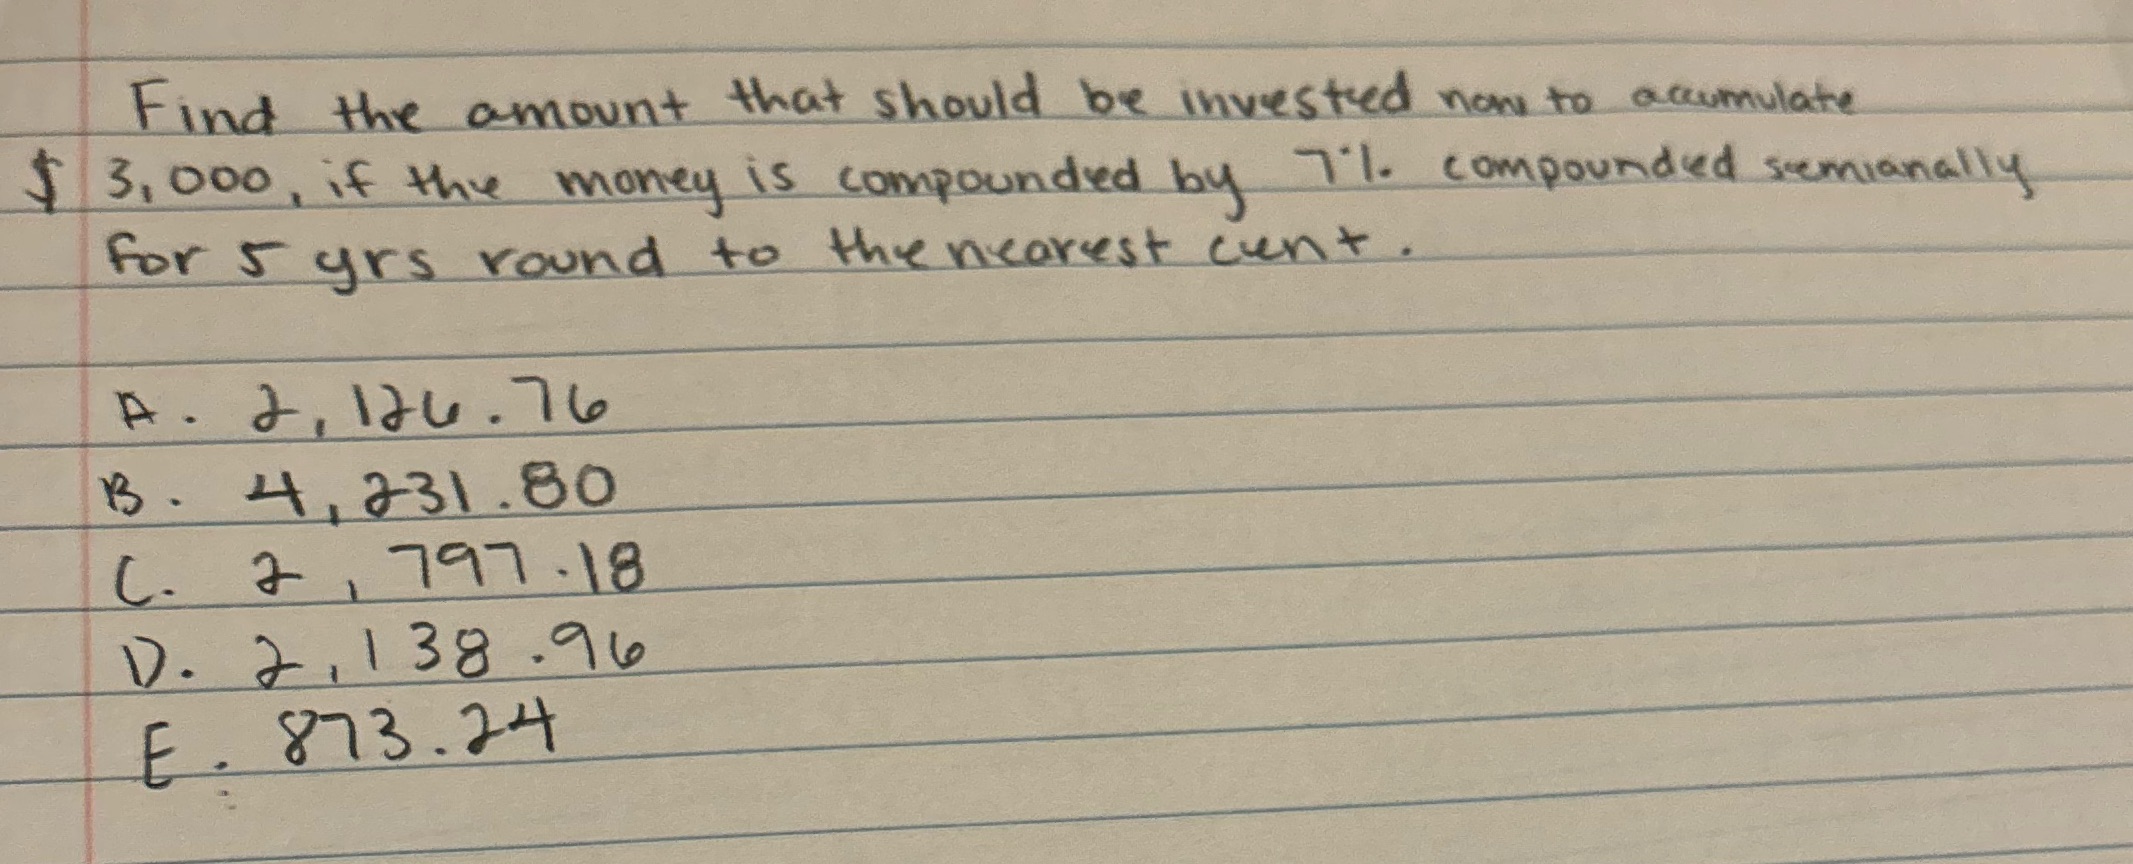 Find the amount that should be invested now to accumulate
$ 3,000, if the money is compounded by 7% compounded semianally
for 5 yrs round to the nearest cent.
A. 2,126.76
B. 4,231.80
C. 2,797.18
D. 2,138.96
E. 873.24